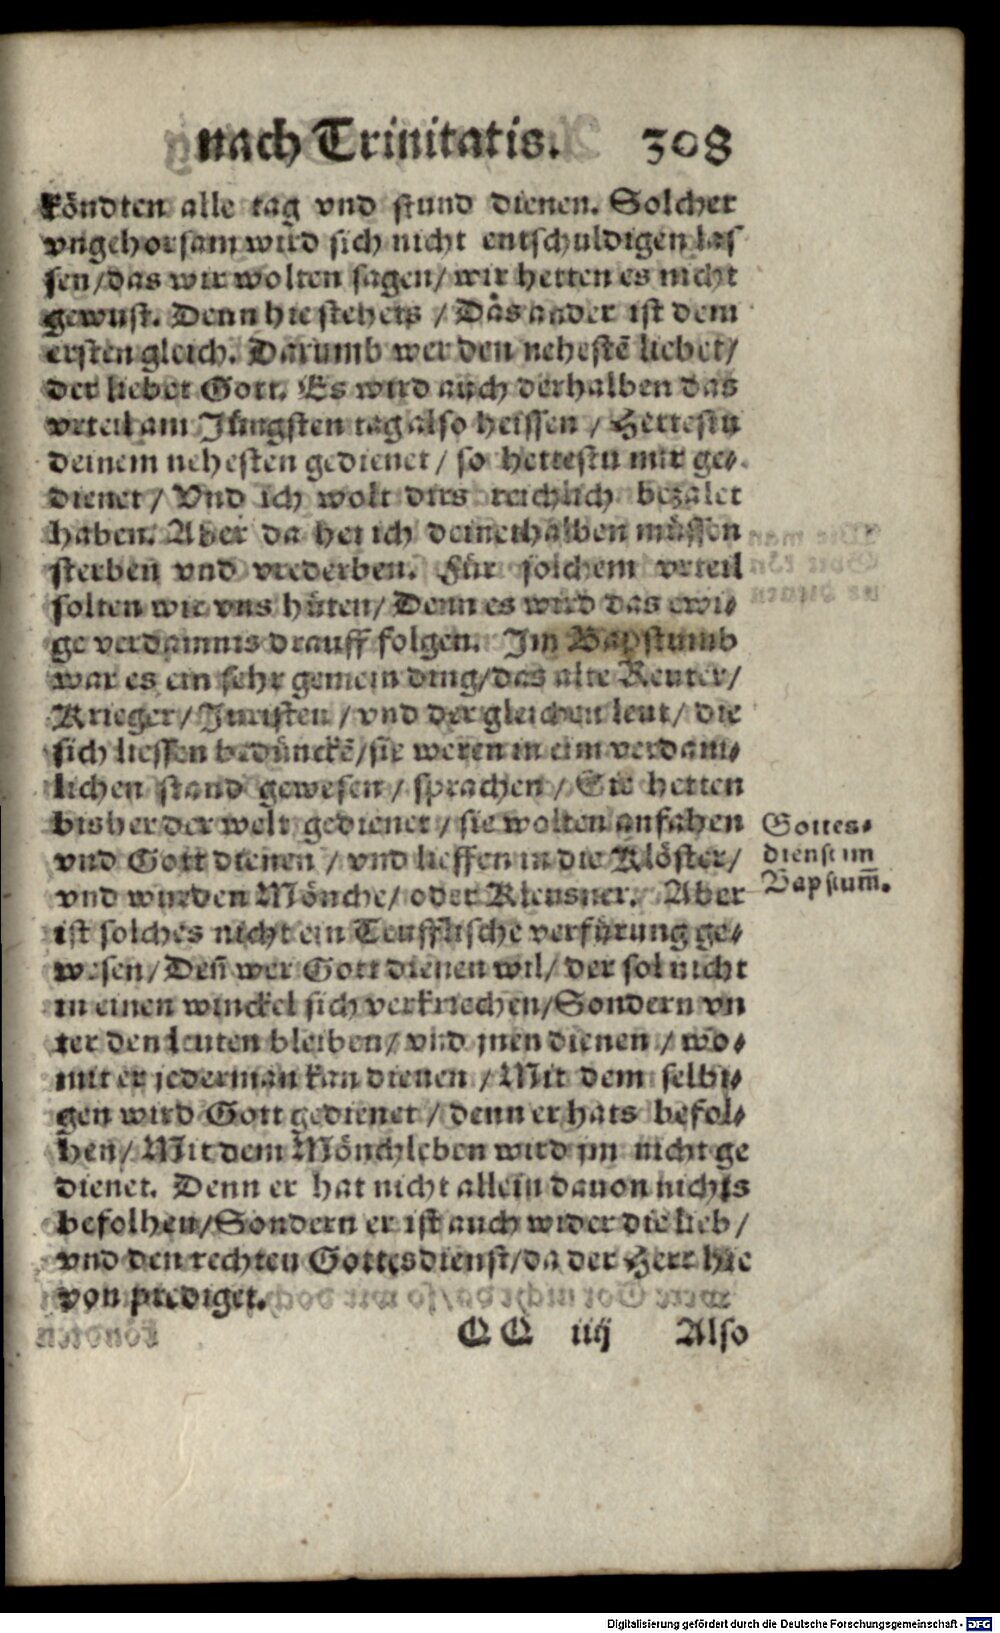 nach Trinitatis. 308
köndten alle tag vnd stund dienen. Solcher
vngehorsam wird sich nicht entschuldigen las
sen/das wir wolten sagen/wir hetten es nicht
gewust. Denn hie stehets / Das ander ist dem
ersten gleich. Darumb wer den nehestē liebet/
der liebet Gott. Es wird auch derhalben das
vrteil am Jüngsten tag also heissen / Hettestu
deinem nehesten gedienet / so hettestu mir ge⸗
dienet / Vnd ich wolt dirs reichlich bezalet
haben. Aber da het ich deinethalben müssen
sterben vnd vrederben. Für solchem vrteil
solten wir vns hüten/ Denn es wird das ewi⸗
ge verdamnis drauff folgen. Im Bapstumb
war es ein sehr gemein ding/das alte Reuter/
Krieger/ Juristen / vnd der gleichen leut/ die
sich liessen bedünckē/sie weren in eim verdam⸗
lichen stand gewesen / sprachen / Sie hetten
bisher der welt gedienet / sie wolten anfahen
vnd Gott dienen / vnd lieffen in die Klöster/
vnd wurden Mönche/ oder Kleusner. Aber
ist solches nicht ein Teufflische verfürung ge⸗
wesen/ Deñ wer Gott dienen wil/ der sol nicht
in einen winckel sich verkriechen/Sondern vn
ter den leuten bleiben/ vnd jnen dienen / wo⸗
mit er jederman kan dienen / Mit dem selbi⸗
gen wird Gott gedienet / denn er hats befol⸗
hen/ Mit dem Mönchleben wird jm nicht ge
dienet. Denn er hat nicht allein dauon nichts
befolhen/Sondern er ist auch wider die lieb/
vnd den rechten Gottesdienst/da der Herr hie
von prediget.
QQ iiij Also
Gottes⸗
dienst im
Bapstum̃.
Digitalisierung gefördert durch die Deutsche Forschungsgemeinschaft - DFG